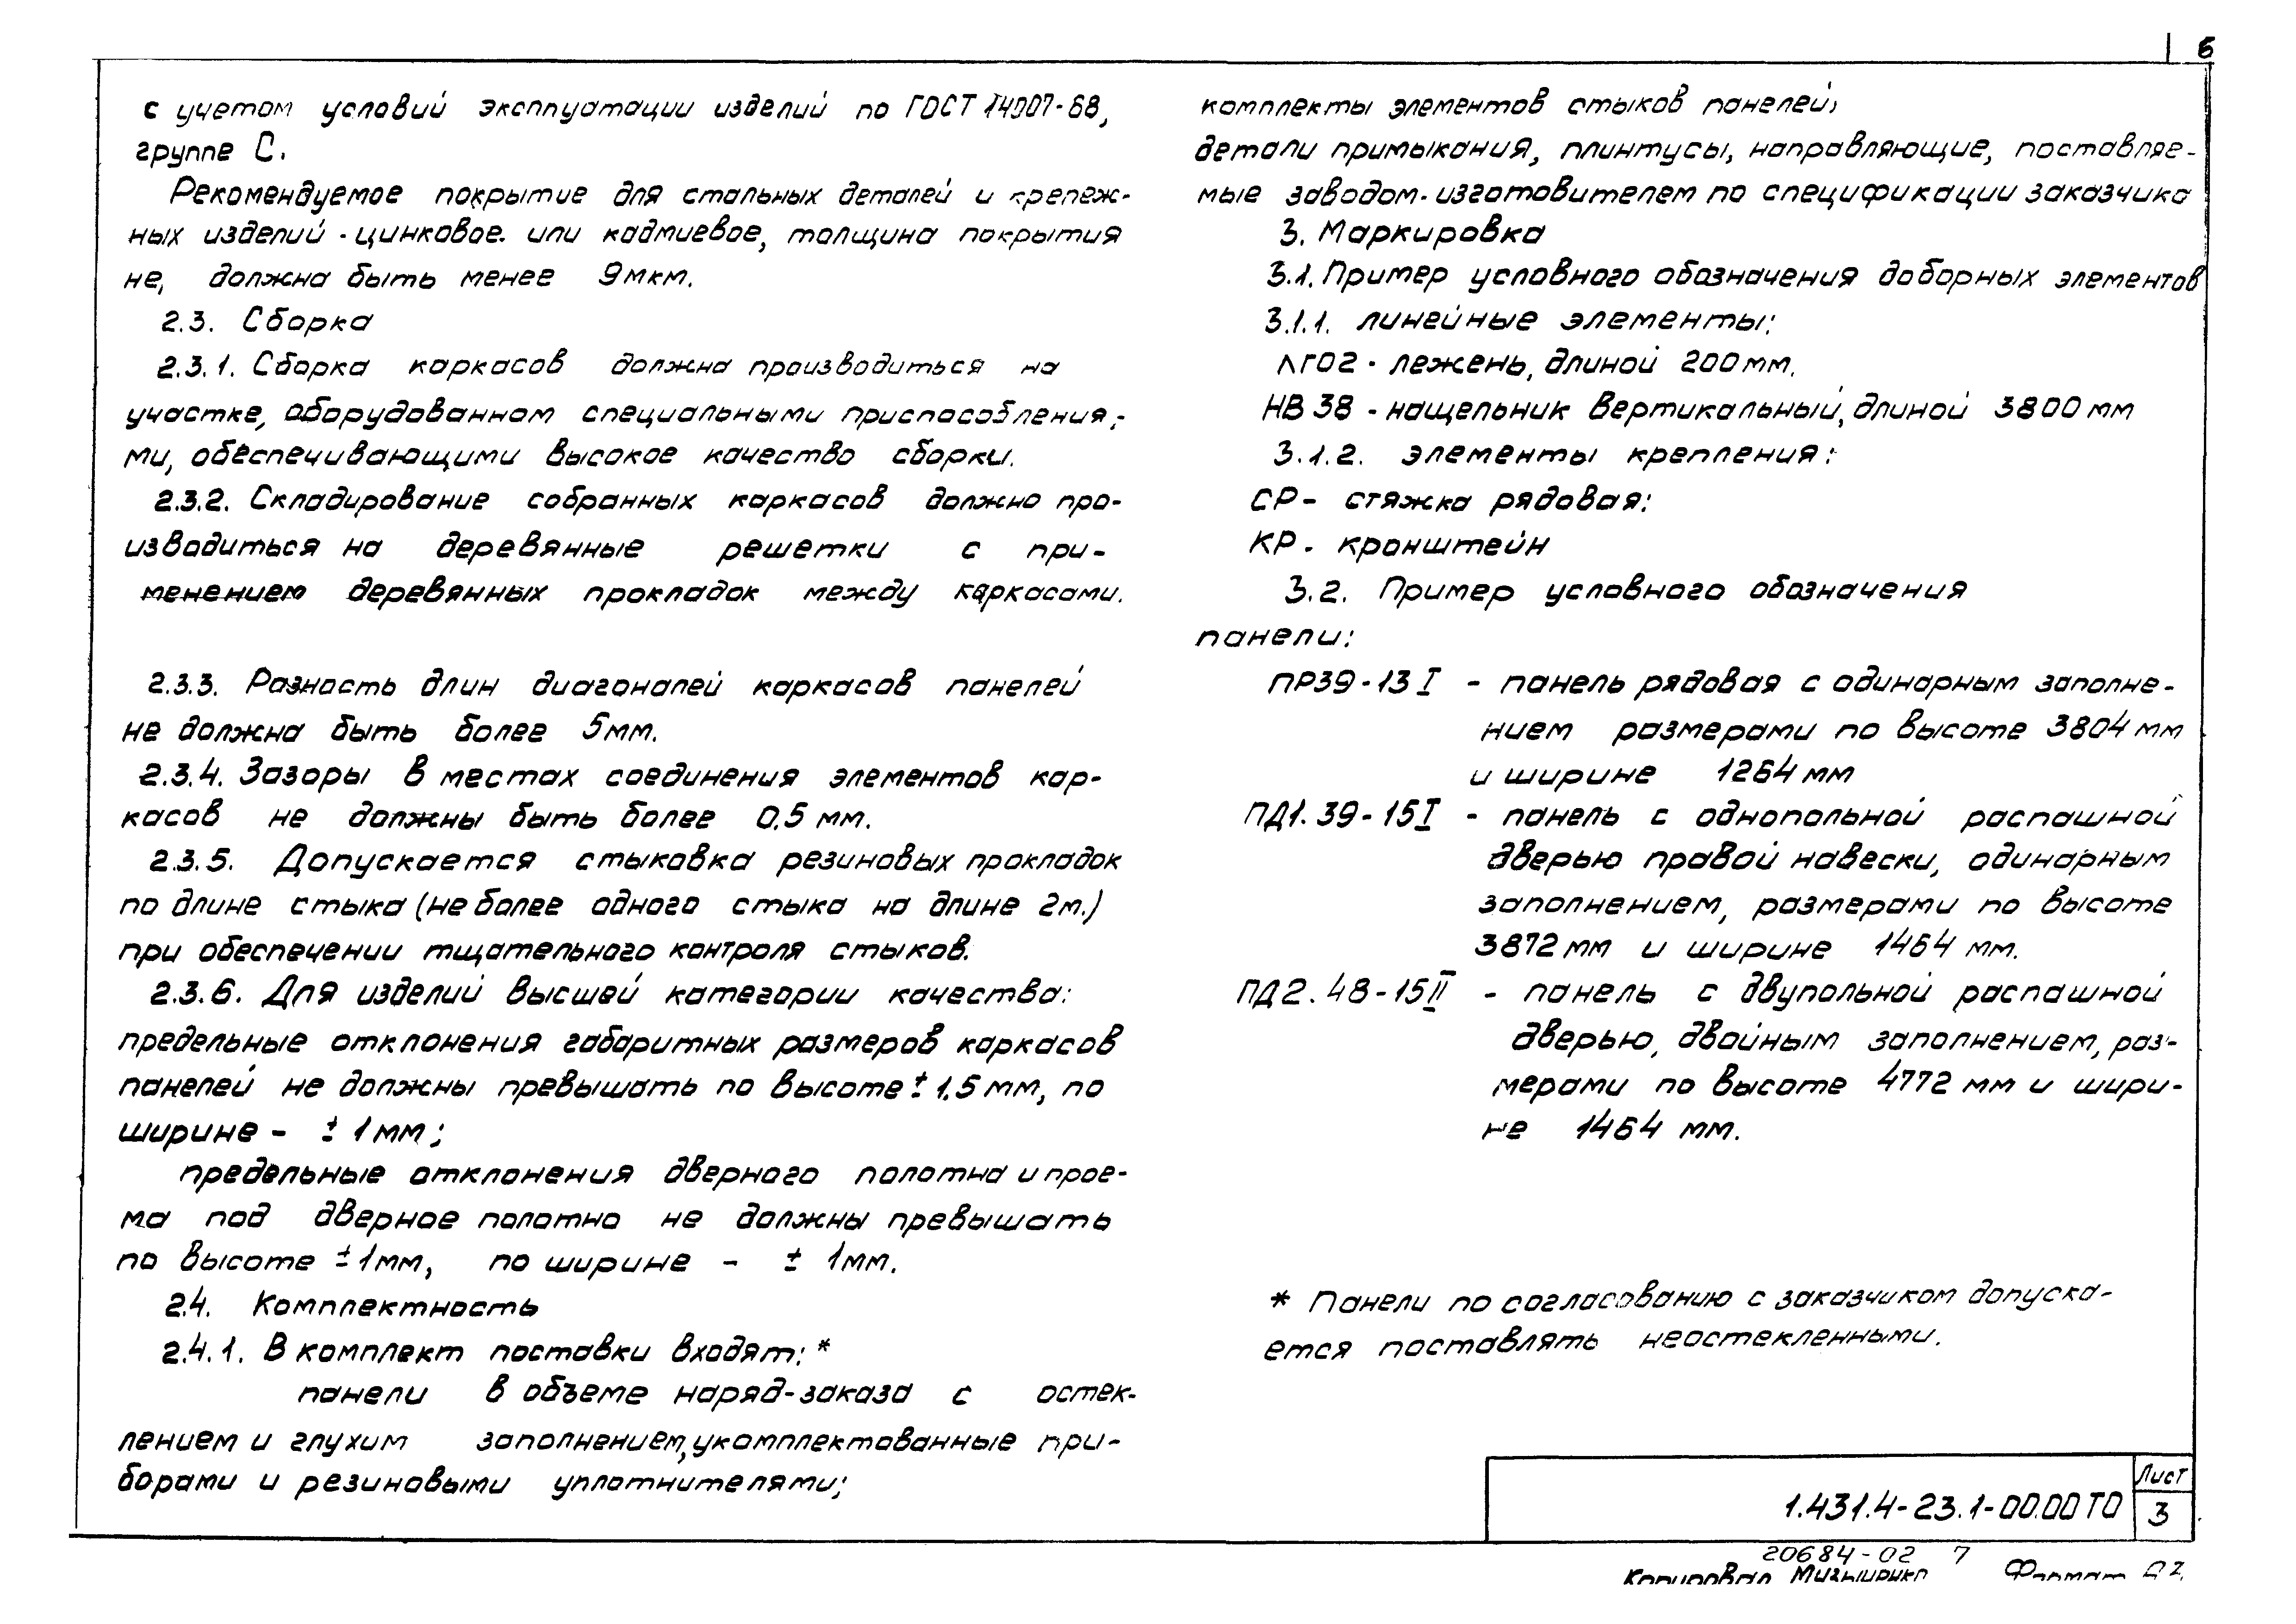 6
с учетом условий эксплуатации изделий по ГОСТ 14007-68,
группе С.
Рекомендуемое покрытие для стальных деталей и крепеж-
ных изделий - цинковое. или кадмиевое, толщина покрытия
не, должна быть менее 9мкм.
2.3. Сборка
2.3.1. Сборка каркасов должна производиться на
участке, оборудованном специальными приспособления;-
ми, обеспечивающими высокое качество сборки.
2.3.2. Складирование собранных каркасов должно про-
изводиться на деревянные решетки с при-
менением деревянных прокладок между каркасами.
2.3.3. Разность длин диагоналей каркасов панелей
не должна быть более 5мм.
2.3.4. Зазоры в местах соединения элементов кар-
касов не должны быть более 0.5 мм.
2.3.5. Допускается стыковка резиновых прокладок
по длине стыка (не более одного стыка на длине 2м.)
при обеспечении тщательного контроля стыков.
2.3.6. Для изделий высшей категории качества:
предельные отклонения габаритных размеров каркасов
панелей не должны превышать по высоте ± 1.5 мм, по
ширине - ± 1мм;
предельные отклонения дверного полотна и прое-
ма под дверное полотно не должны превышать
по высоте ±1мм, по ширине - ± 1мм.
2.4. Комплектность
2.4.1. В комплект поставки входят: *
панели в объеме наряд-заказа с остек-
лением и глухим заполнением, укомплектованные при-
борами и резиновыми уплотнителями;
комплекты элементов стыков панелей;
детали примыкания, плинтусы, направляющие, поставляе-
мые заводом-изготовителем по спецификации заказчика
3. Маркировка
3.1. Пример условного обозначения доборных элементов
3.1.1. линейные элементы:
ЛГ02 - лежень, длиной 200мм.
НВ 38 - нащельник вертикальный, длиной 3800 мм
3.1.2. элементы крепления:
СР- стяжка рядовая:
КР. кронштейн
3.2. Пример условного обозначения
панели:
ПР39-13 I - панель рядовая с одинарным заполне-
нием размерами по высоте 3804 мм
и ширине 1264 мм
ПД1. 39-15I - панель с однопольной распашной
дверью правой навески, одинарным
заполнением, размерами по высоте
3872 мм и ширине 1464 мм.
ПД2. 48-15II - панель с двупольной распашной
дверью, двойным заполнением, раз-
мерами по высоте 4772 мм и шири-
не 1464 мм.
* Панели по согласованию с заказчиком допуска-
ется поставлять неостекленными.
1.431.4-23.1-00.00 ТО
Лист
3
20684-02 7
Копировал Формат